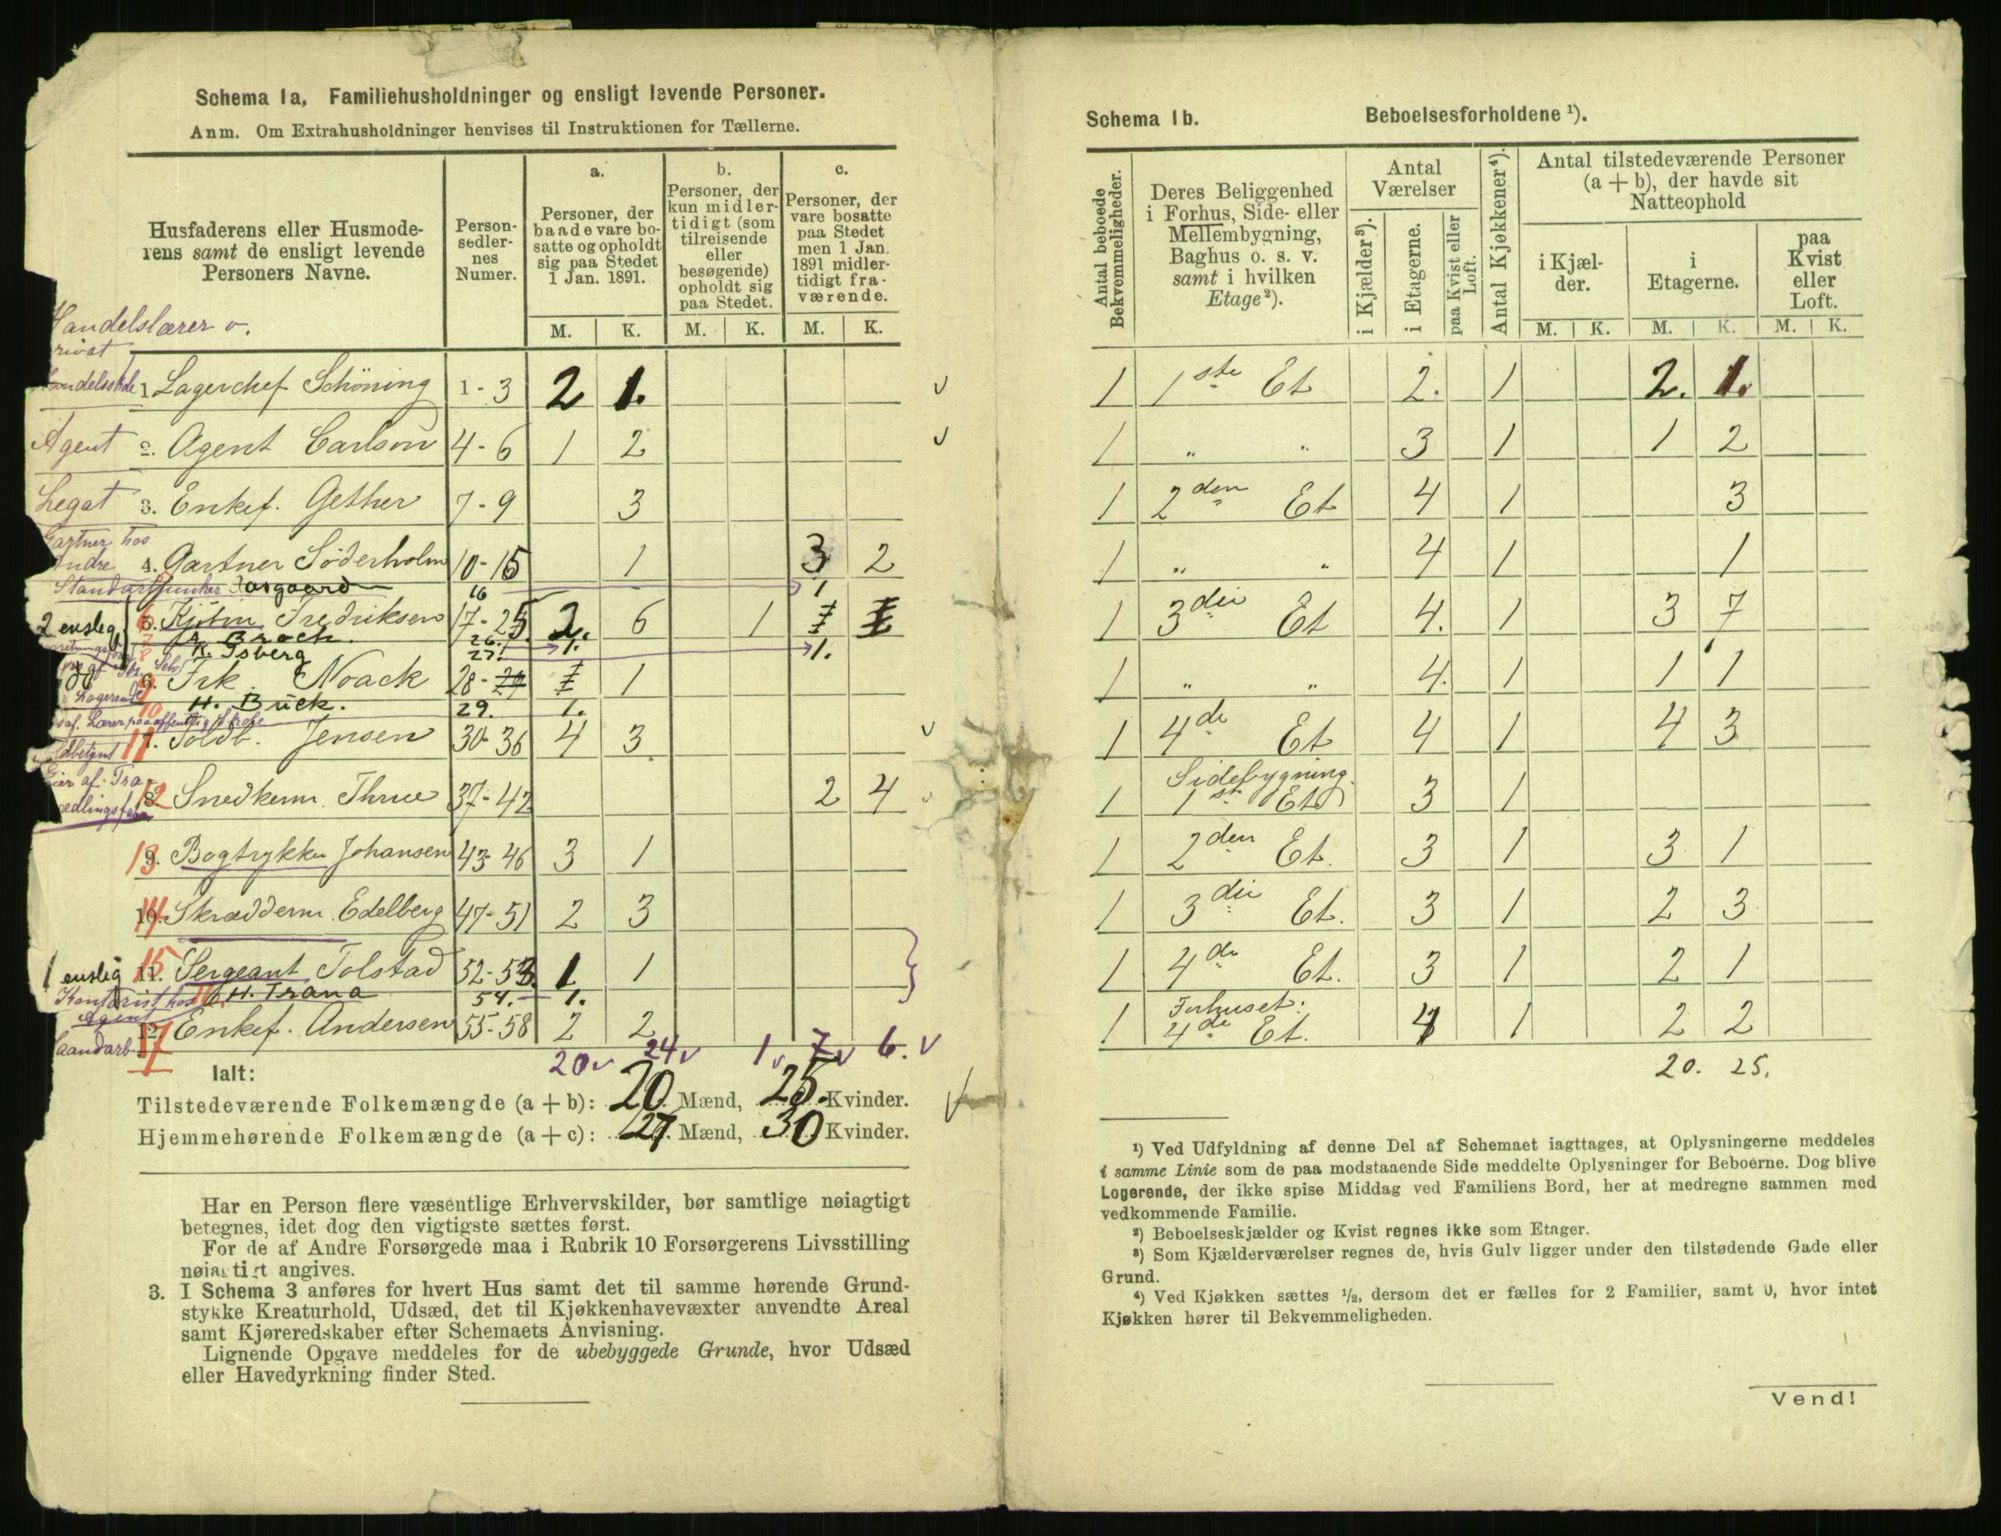 Schema 1a, Familiehusholdninger og ensligt levende Personer.
Anm. Om Extrahusholdninger henvises til Instruktionen for Tællerne.
Husfaderens eller Husmode-
rens samt de ensligt levende
Personers Navne.
Person-
sedler-
nes
Numer.
a.
Personer, der
baade vare bo-
satte og opholdt
sig paa Stedet
1 Jan. 1891.
b.
Personer, der
kun midler-
tidigt (som
tilreisende
eller
besøgende)
opholdt sig
paa Stedet.
c.
Personer, der
vare bosatte
paa Stedet
men 1 Jan.
1891 midler-
tidigt fra-
værende.
M. K. M. K. M. K.
Handelslærer v.
1. Lagerchef Schöning 1-3 2 1. v
Agent 2. Agent Carlson 4-6 1 2 v
Legat 3. Enkef. Gether 7-9 3
Gartner hos
Andre 4. Gartner Söderholm 10-15 1 3 2
Aasgaard 16 1
2 enslig 5. Fredriksen 17-25 2. 6 1
A. Broch. 26. 1.
K. Isberg 27. 1.
6. Frk. Noack 28- 1
Logerende
H. Buck. 29. 1.
11 7. Toldb. Jensen 30-36 4 3 v
12 8. Snedkerm. Thrue 37-42 2 4
13 9. Bogtrykker Johansen 43-46 3 1
14 10. Skrædderm. Edelberg 47-51 2 3
1 enslig 15 11. Sergeant Tolstad 52-53. 1. 1
Kontorist hos
Agent
H. Trana 54. 1.
17 12. Enkef. Andersen 55-58 2 2
20 v 24 v 1 v 7 v 6. v
Ialt:
Tilstedeværende Folkemængde (a + b): 20 Mænd, 25. Kvinder.
Hjemmehørende Folkemængde (a + c): 27 Mænd, 30 Kvinder.
Har en Person flere væsentlige Erhvervskilder, bør samtlige nøiagtigt
betegnes, idet dog den vigtigste sættes først.
For de af Andre Forsørgede maa i Rubrik 10 Forsørgerens Livsstilling
nøiagtigt angives.
3. I Schema 3 anføres for hvert Hus samt det til samme hørende Grund-
stykke Kreaturhold, Udsæd, det til Kjøkkenhavevæxter anvendte Areal
samt Kjøreredskaber efter Schemaets Anvisning.
Lignende Opgave meddeles for de ubebyggede Grunde, hvor Udsæd
eller Havedyrkning finder Sted.
Schema 1b. Beboelsesforholdene ¹).
Antal beboede
Bekvemmeligheder.
Deres Beliggenhed
i Forhus, Side- eller
Mellembygning,
Baghus o. s. v.
samt i hvilken
Etage²).
Antal
Værelser
i Kjælder³).
i Etagerne.
paa Kvist eller
Loft.
Antal Kjøkkener⁴).
Antal tilstedeværende Personer
(a + b), der havde sit
Natteophold
i Kjæl-
der.
i
Etagerne.
paa
Kvist
eller
Loft.
M. K. M. K. M. K.
1 1ste Et 2. 1 2. 1.
1 „ „ 3 1 1 2
1 2den Et 4 1 3
1 „ „ 4 1 1
1 3die Et 4. 1 3 7
1 „ „ 4. 1 1 1
1 4de Et 4 1 4 3
Sidebygning.
1 1ste Et 3 1
1 2den Et. 3 1 3 1
1 3die Et. 3 1 2 3
1 4de Et. 3 1 2 1
Forhuset:
1 4de Et. 4 1 2 2
20. 25.
¹) Ved Udfyldning af denne Del af Schemaet iagttages, at Oplysningerne meddeles
i samme Linie som de paa modstaaende Side meddelte Oplysninger for Beboerne. Dog blive
Logerende, der ikke spise Middag ved Familiens Bord, her at medregne sammen med
vedkommende Familie.
²) Beboelseskjælder og Kvist regnes ikke som Etager.
³) Som Kjælderværelser regnes de, hvis Gulv ligger under den tilstødende Gade eller
Grund.
⁴) Ved Kjøkken sættes ½, dersom det er fælles for 2 Familier, samt 0, hvor intet
Kjøkken hører til Bekvemmeligheden.
Vend!